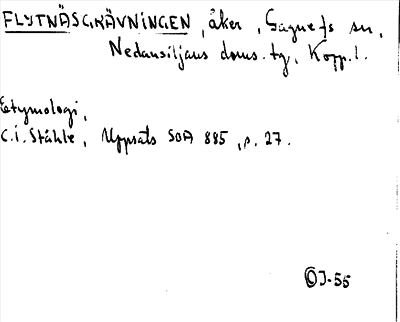 FLYTNÄSGRÄVNINGEN, åker, Gagnefs sn,
Nedansiljans doms. tg, Kopp. l.
Etymologi,
C.I. Ståhle, Uppsats SOA 885, s. 27.
OJ-55